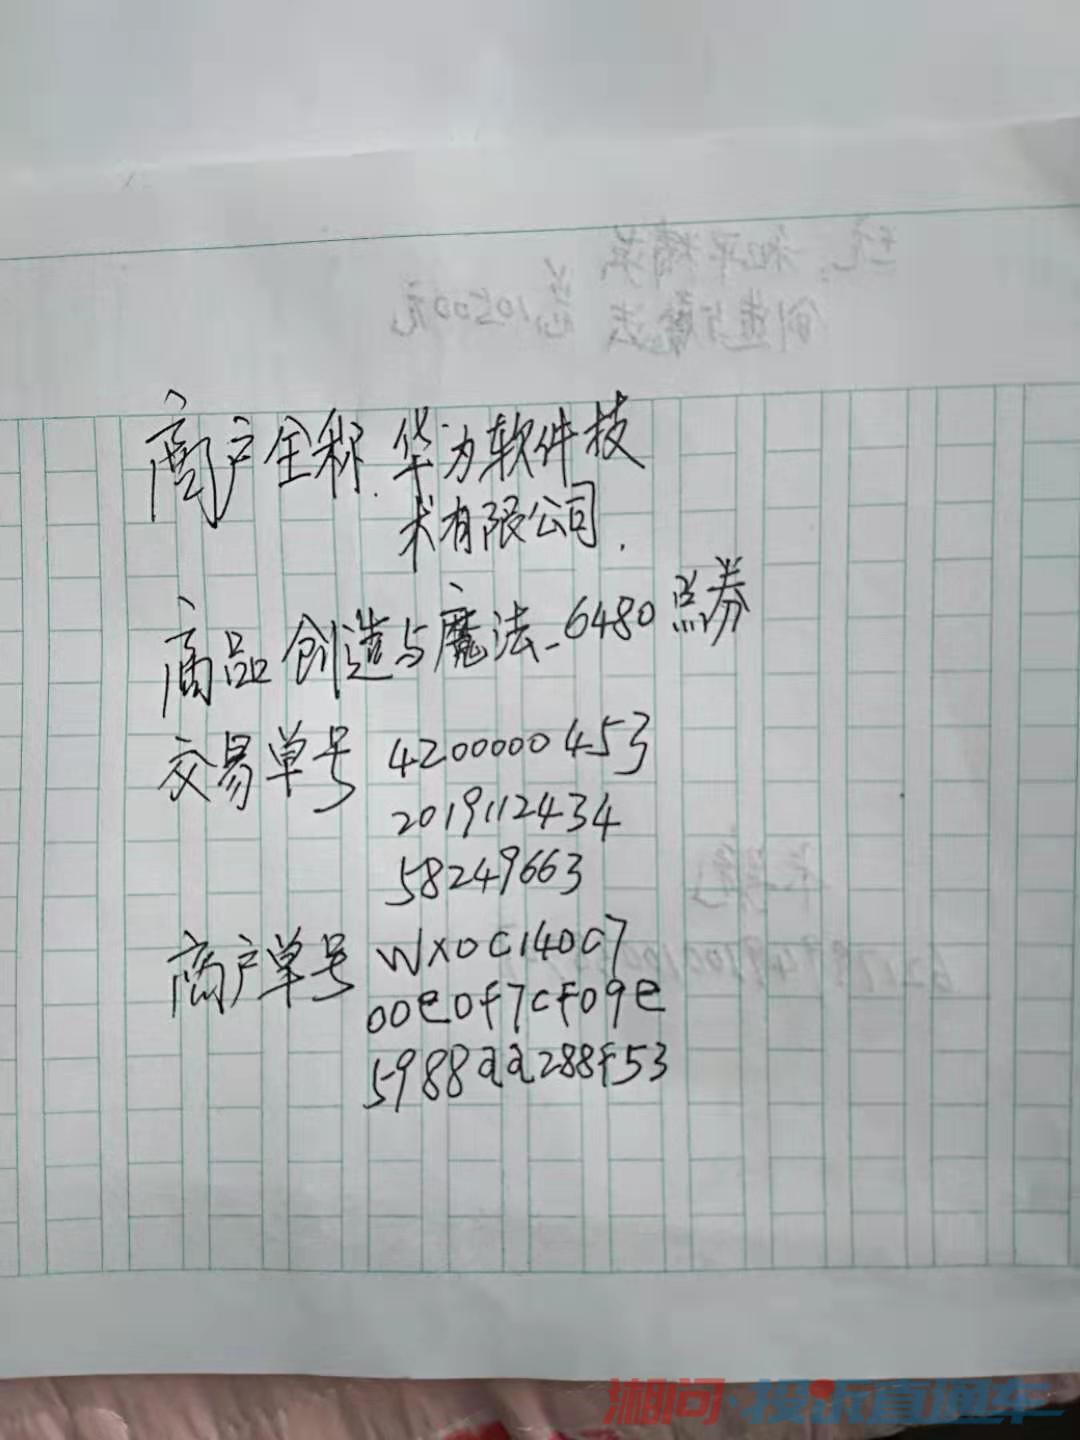 商户全称.华为软件技
术有限公司.
商品 创造与魔法-6480点券
交易单号 4200000453
2019112434
58249663
商户单号 WX0C140C7
00e0f7cf09e
5988aa288f53
湘问·投诉直通车